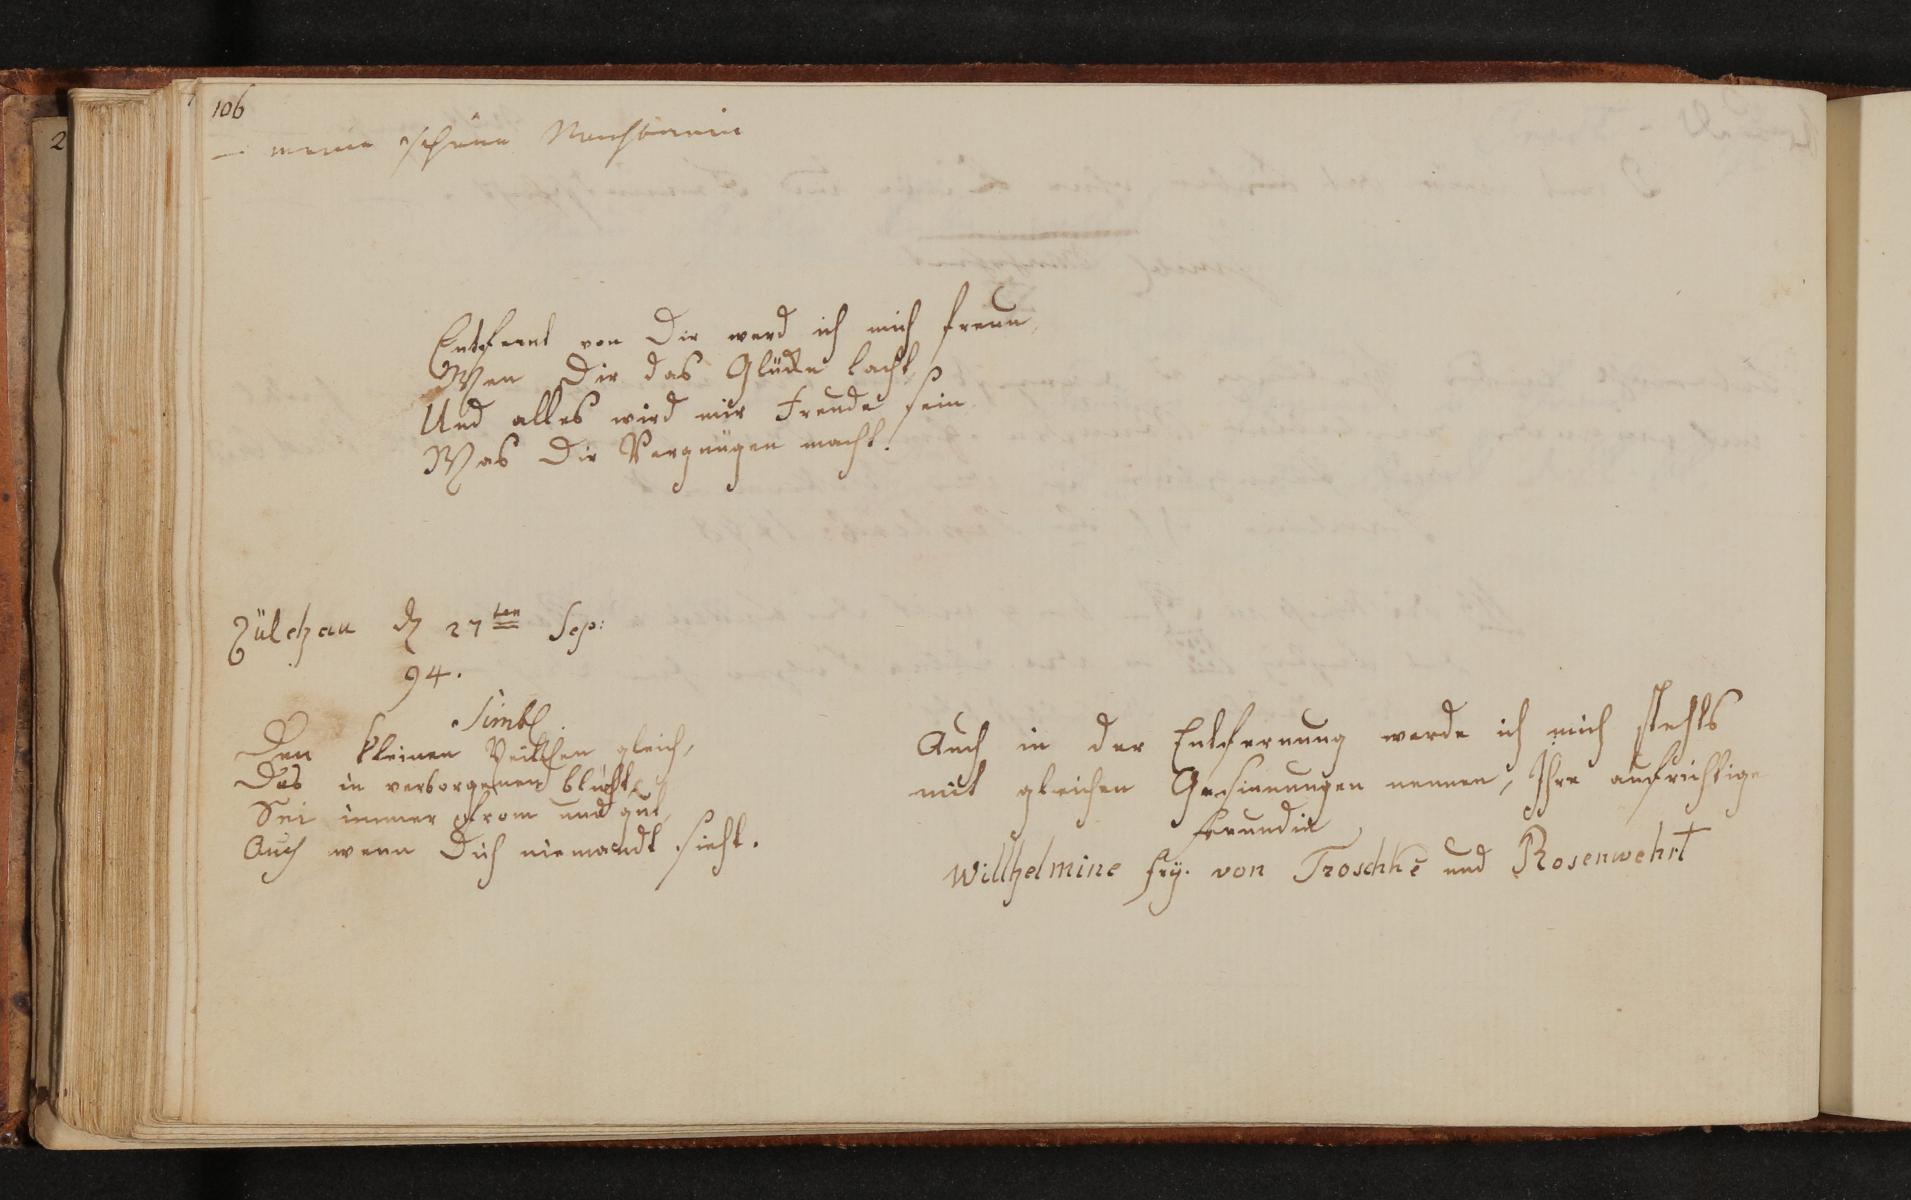 106
— meine schöne Nachbarin
Entfernt von Dir werd ich mich freun,
Wen Dir das Glücke lacht,
Und alles wird mir Freude sein
Was Dir Vergnügen macht.
Zülchau d 27ten Sep:
94.
Simbl.
Den kleinen Veilchen gleich,
Das in verborgenen blüht,
Sei immer from und gut,
Auch wenn Dich niemandt sieht.
Auch in der Entfernung werde ich mich stehts
mit gleichen Gesinnungen nennen, Ihre aufrichtige
Freundin
Willhelmine fry. von Troschke und Rosenwehrt
2